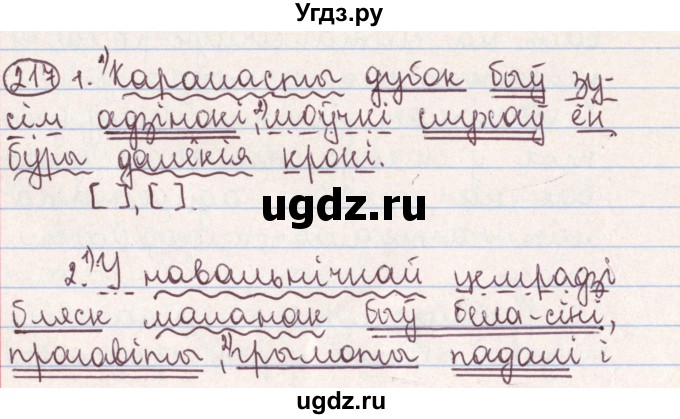 Угдз.ру
217 1. 1)Карамасты дубок быў зу-
сім адзінокі, 2)моўчкі слухаў ён
буры далёкія крокі.
[ ], [ ].
ugdz.ru
2. 1)У навальнічнай цемрадзі
бляск маланак быў бела-сіні,
працавіты, 2)грымоты падалі і
ugdz.ru